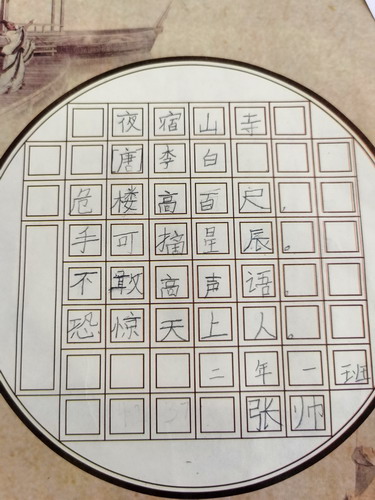 夜宿山寺
[唐]李白
危楼高百尺,
手可摘星辰。
不敢高声语,
恐惊天上人。
二年一班
张帅